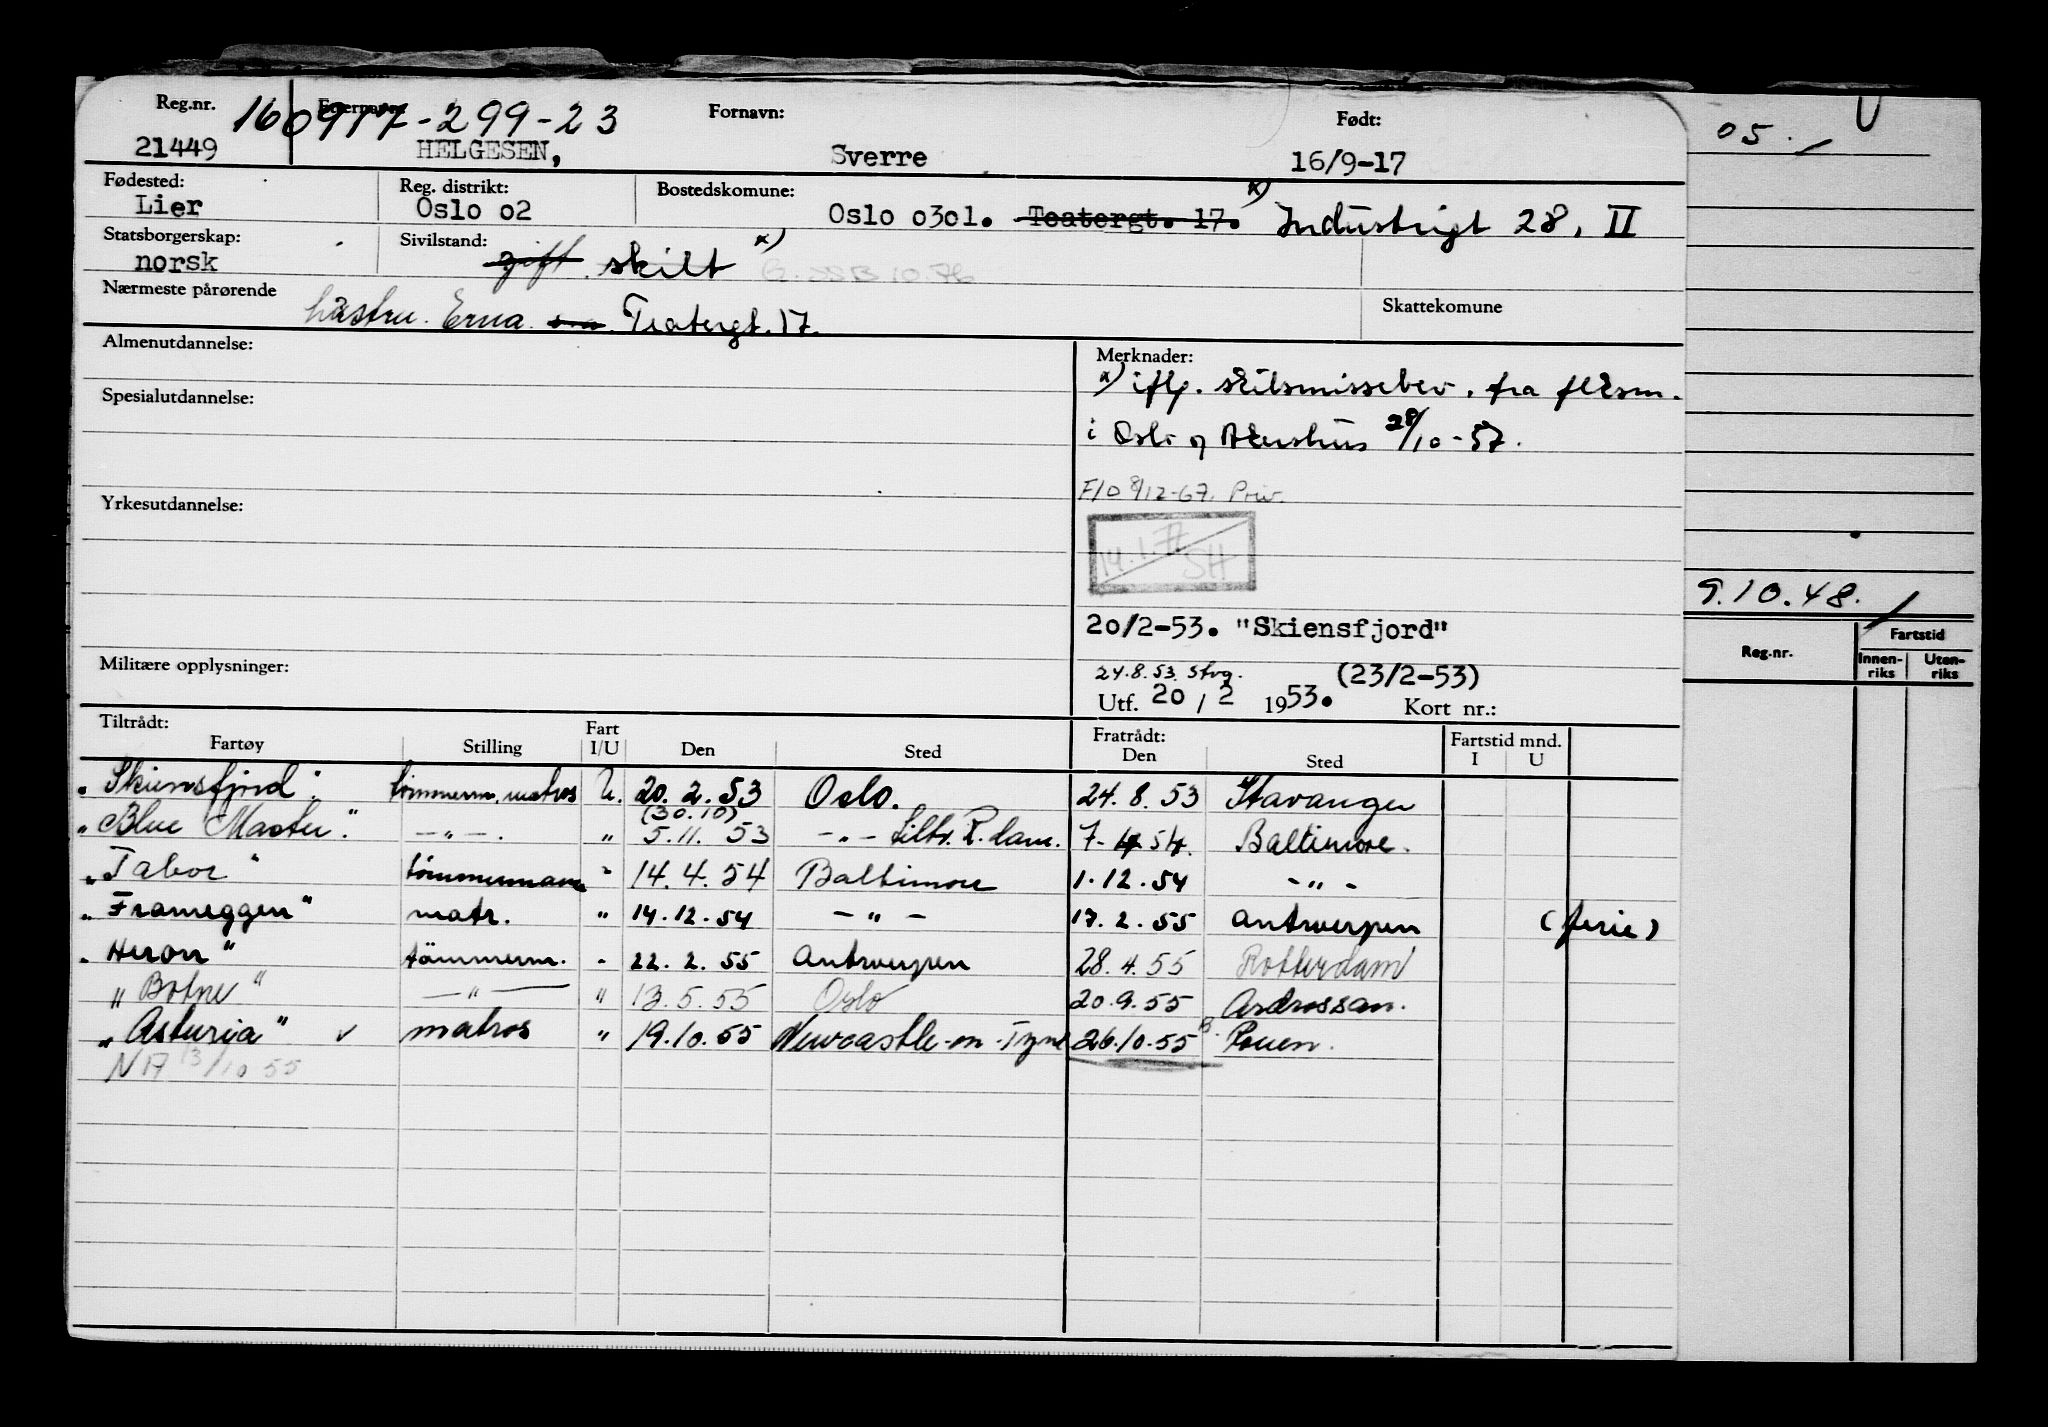 Reg.nr. Etternavn: Fornavn: Født:
160917-299-23
21449 HELGESEN, Sverre 16/9-17
Fødested: Reg. distrikt: Bostedskomune: x)
Lier Oslo o2 Oslo o3ol. Teatergt. 17. Industrigt 28, II
Statsborgerskap: Sivilstand: x)
norsk gift skilt
Nærmeste pårørende Skattekomune
hustru Erna Teatergt. 17
Almenutdannelse: Merknader:
x) iflg. skilsmissebev. fra flkesm.
Spesialutdannelse:
i Oslo og Akershus 28/10-57.
F/O 8/12-67. Priv.
Yrkesutdannelse:
14.1.77 SH
20/2-53. "Skiensfjord"
Militære opplysninger:
24.8.53. Stvg. (23/2-53)
Utf. 20 / 2 1953. Kort nr.:
Tiltrådt: Fart Fratrådt: Fartstid mnd.
Fartøy Stilling I/U Den Sted Den Sted I U
"Skiensfjord". tömmerm. matros U. 20. 2. 53 Oslo. 24. 8. 53 Stavanger
(30.10)
"Blue Master". -"-. " 5.11. 53 -"- R.dam. 7-4 54. Baltimore.
"Tabor" tömmermann " 14. 4. 54 Baltimore 1. 12. 54 -"-
"Frameggen" matr. " 14.12.54 -"- 17. 2. 55 Antwerpen (ferie)
"Heron" tömmerm. - 22. 2. 55 Antwerpen 28. 4. 55 Rotterdam
"Botne" -"- " 13. 5. 55 Oslo 20. 9. 55 Ardrossan.
"Asturia" v matros " 19.10.55 Newcastle-on-Tyne 26.10.55 Rouen.
N17 13/10 55
05.
9.10.48.
Reg.nr. Fartstid
Innen-riks Uten-riks